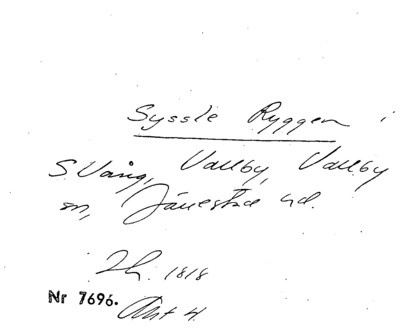 Syssle Ryggen i
S. Vång, Vallby, Vallby
sn, Järrestad hd.
Lh. 1818
Nr 7696.
Akt 4